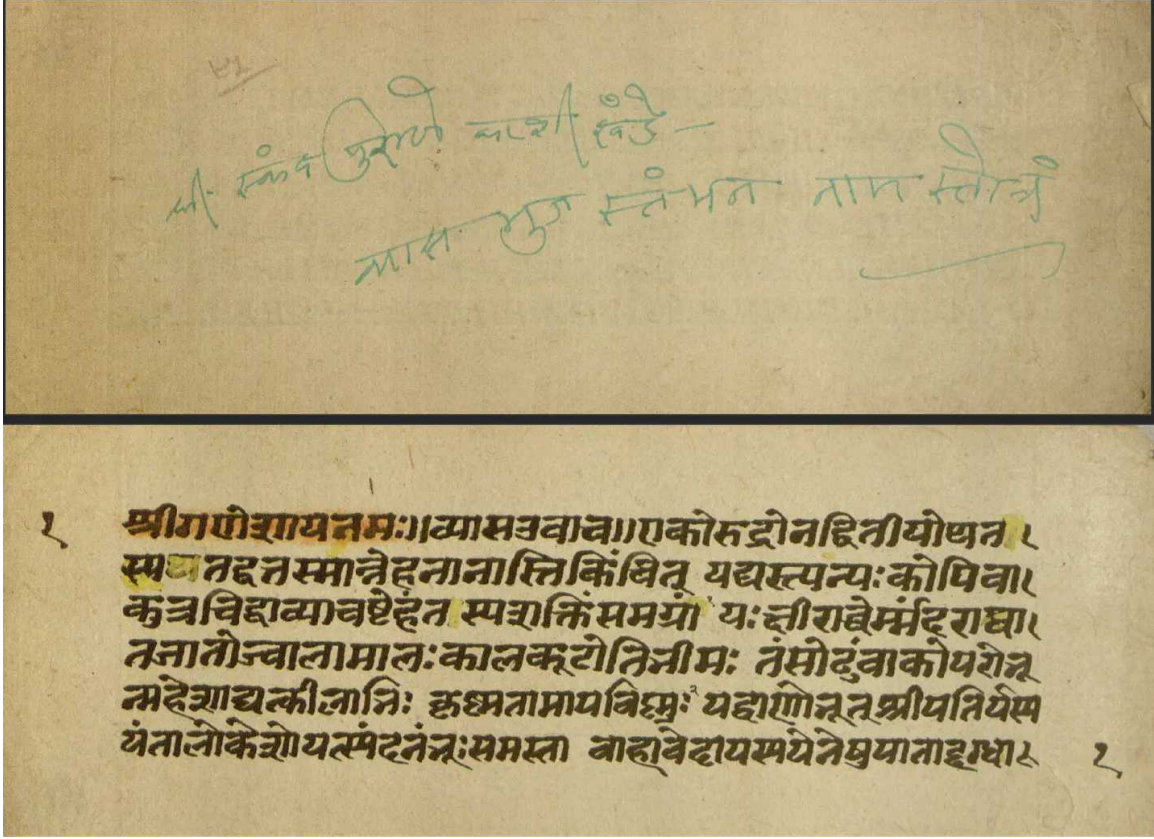 श्री स्कंद पुराणे काशी खंडे —
व्यास भुज स्तंभन नाम स्तोत्रं
१ श्रीगणेशायनमः॥व्यासउवाच॥एकोरुद्रोनद्वितीयोयत
स्प तद्दतस्मान्नेहनानास्तिकिंचित् यद्यस्त्यन्यःकोपिवा
कुत्रचिद्वाव्याचष्टेहंत स्पशक्तिंसमग्रां यःक्षीराब्धेर्म्मंदराघा
तजातोज्वालामालःकालकूटोतिभीमः तंसोढुंवाकोपरोभू
न्महेशाद्यत्कीलाभिः कृष्णतामापविष्णुः२ यद्बाणोभूत्श्रीपतिर्यस्प
यंतालोकेशोयत्स्पंदनंभूःसमस्ता वाहावेदायस्पयेनेषुपाताद्दग्धा १